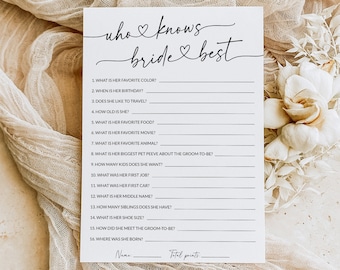 who knows
bride best
1. WHAT IS HER FAVORITE COLOR?
2. WHEN IS HER BIRTHDAY?
3. DOES SHE LIKE TO TRAVEL?
4. HOW OLD IS SHE?
5. WHAT IS HER FAVORITE FOOD?
6. WHAT IS HER FAVORITE MOVIE?
7. WHAT IS HER FAVORITE ANIMAL?
8. WHAT IS HER BIGGEST PET PEEVE ABOUT THE GROOM-TO-BE?
9. HOW MANY KIDS DOES SHE WANT?
10. WHAT WAS HER FIRST JOB?
11. WHAT WAS HER FIRST CAR?
12. WHAT IS HER MIDDLE NAME?
13. HOW MANY SIBLINGS DOES SHE HAVE?
14. WHAT IS HER SHOE SIZE?
15. HOW DID SHE MEET THE GROOM-TO-BE?
16. WHERE WAS SHE BORN?
Name Total points